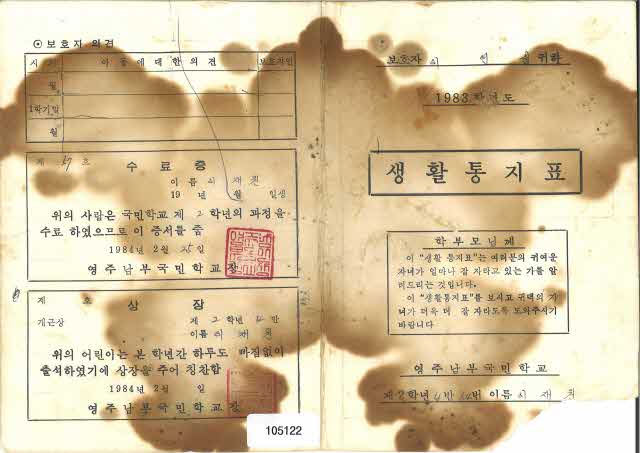 ⊙ 보호자 의견
시 아동에대한의견 보호자인
월
1학기말
월
제 호
수료증
이름
19 년 월 일생
위의 사람은 국민학교 제 2 학년의 과정을
수료 하였으므로 이 증서를 줌
1984년 2월 25일
영주남부국민학교장
제 호
상장
개근상
제 2 학년 4 반
이름
위의 어린이는 본 학년간 하루도 빠짐없이
출석하였기에 상장을 주어 칭찬함
1984년 2월 일
영주남부국민학교장
105122
보호자 귀하
1983학년도
생활통지표
학부모님께
이 "생활통지표"는 여러분의 귀여운
자녀가 얼마나 잘 자라고 있는 가를 알
려드리는 것입니다.
이 "생활통지표"를 보시고 귀댁의 자
녀가 더욱 더 잘 자라도록 도와주시기
바랍니다
영주남부국민학교
제2학년 4반 번 이름